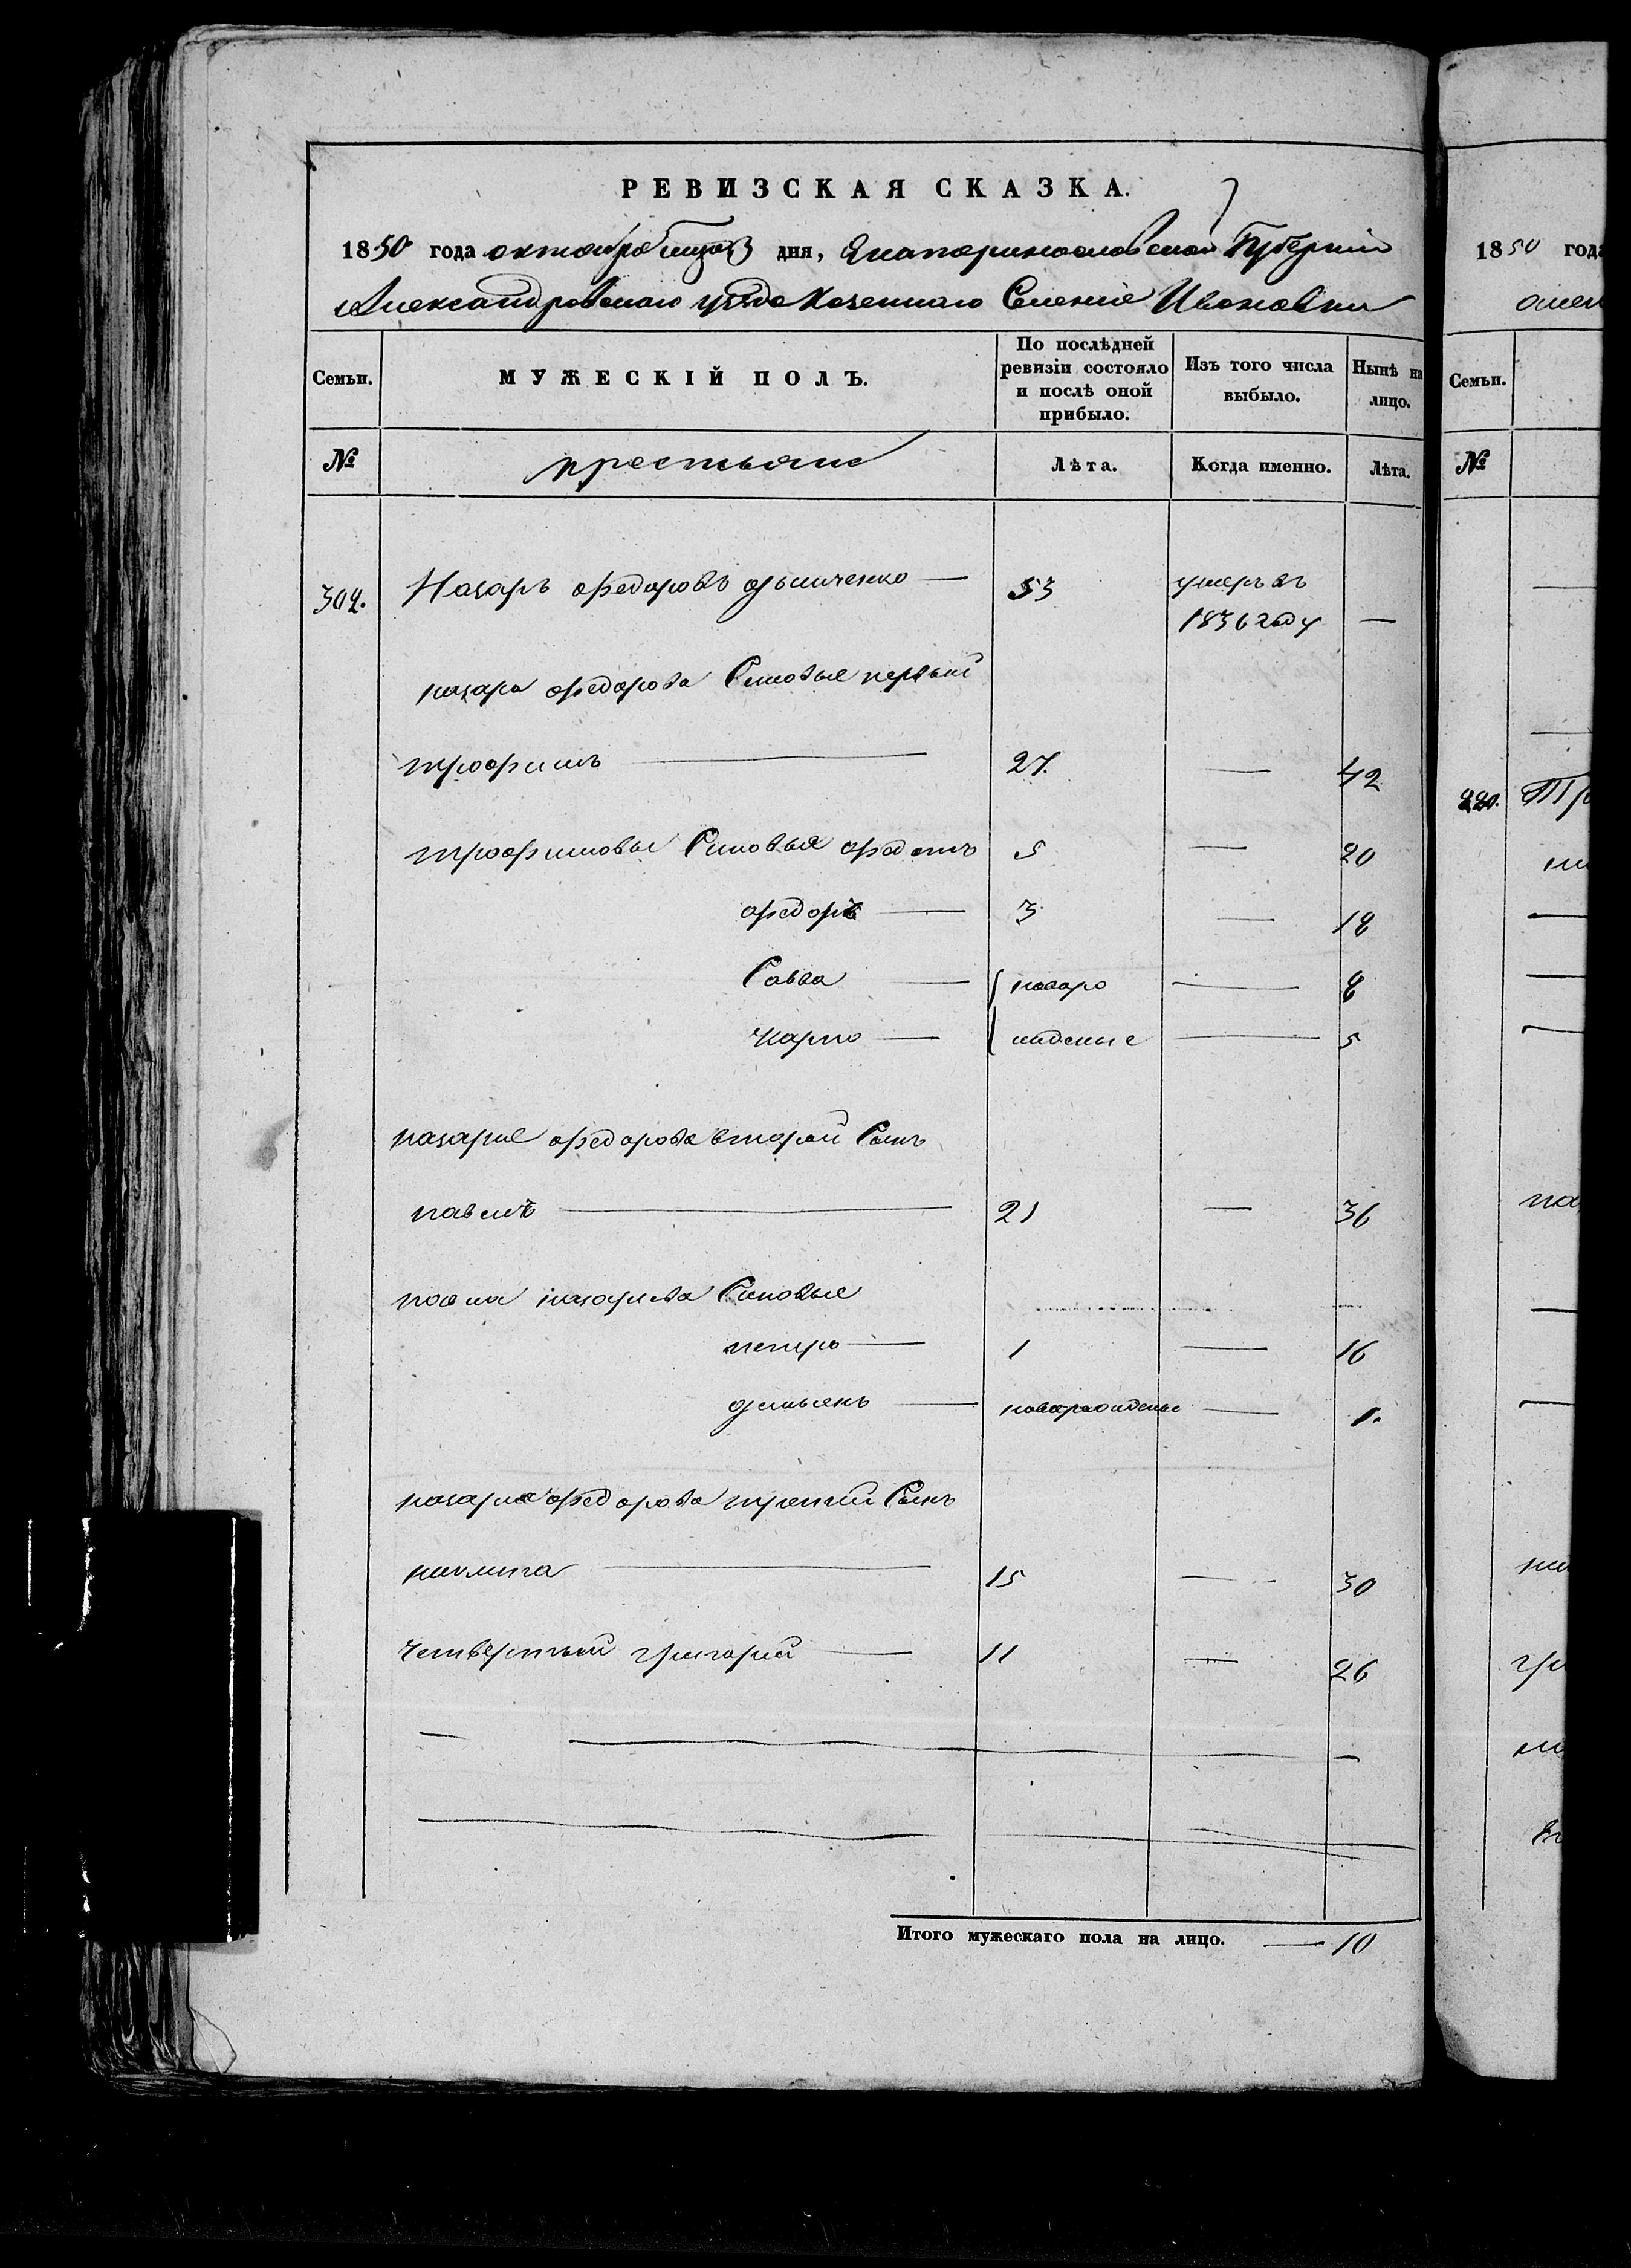 РЕВИЗСКАЯ СКАЗКА.
1850 года октября дня, Екатеринославской Губернии
Александровскаго уезда Казеннаго Селения Ивановки
Семьи.
МУЖЕСКІЙ ПОЛЪ.
По послѣдней ревизіи состояло и послѣ оной прибыло.
Изъ того числа выбыло.
Нынѣ на лицо.
№
крестьяне
Лѣта.
Когда именно.
Лѣта.
304. Назаръ федоровъ 53 умеръ въ
1836 году —
назара федорова Сыновья первый
трофимъ 27. — 42
трофимовы Сыновья 5 — 20
федоръ — 3 — 18
Савва — новоро — 8
Карпо — жденые — 5
назария федорова второй Сынъ
павелъ 21 — 36
павла назарова Сыновья
петро — 1 — 16
демьянъ — новорожденые — 1.
назария федорова третий Сынъ
никита 15 — 30
Четвертый григорий — 11 — 26
Итого мужескаго пола на лицо. — 10
1850 года
Семьи.
№
220. Тр